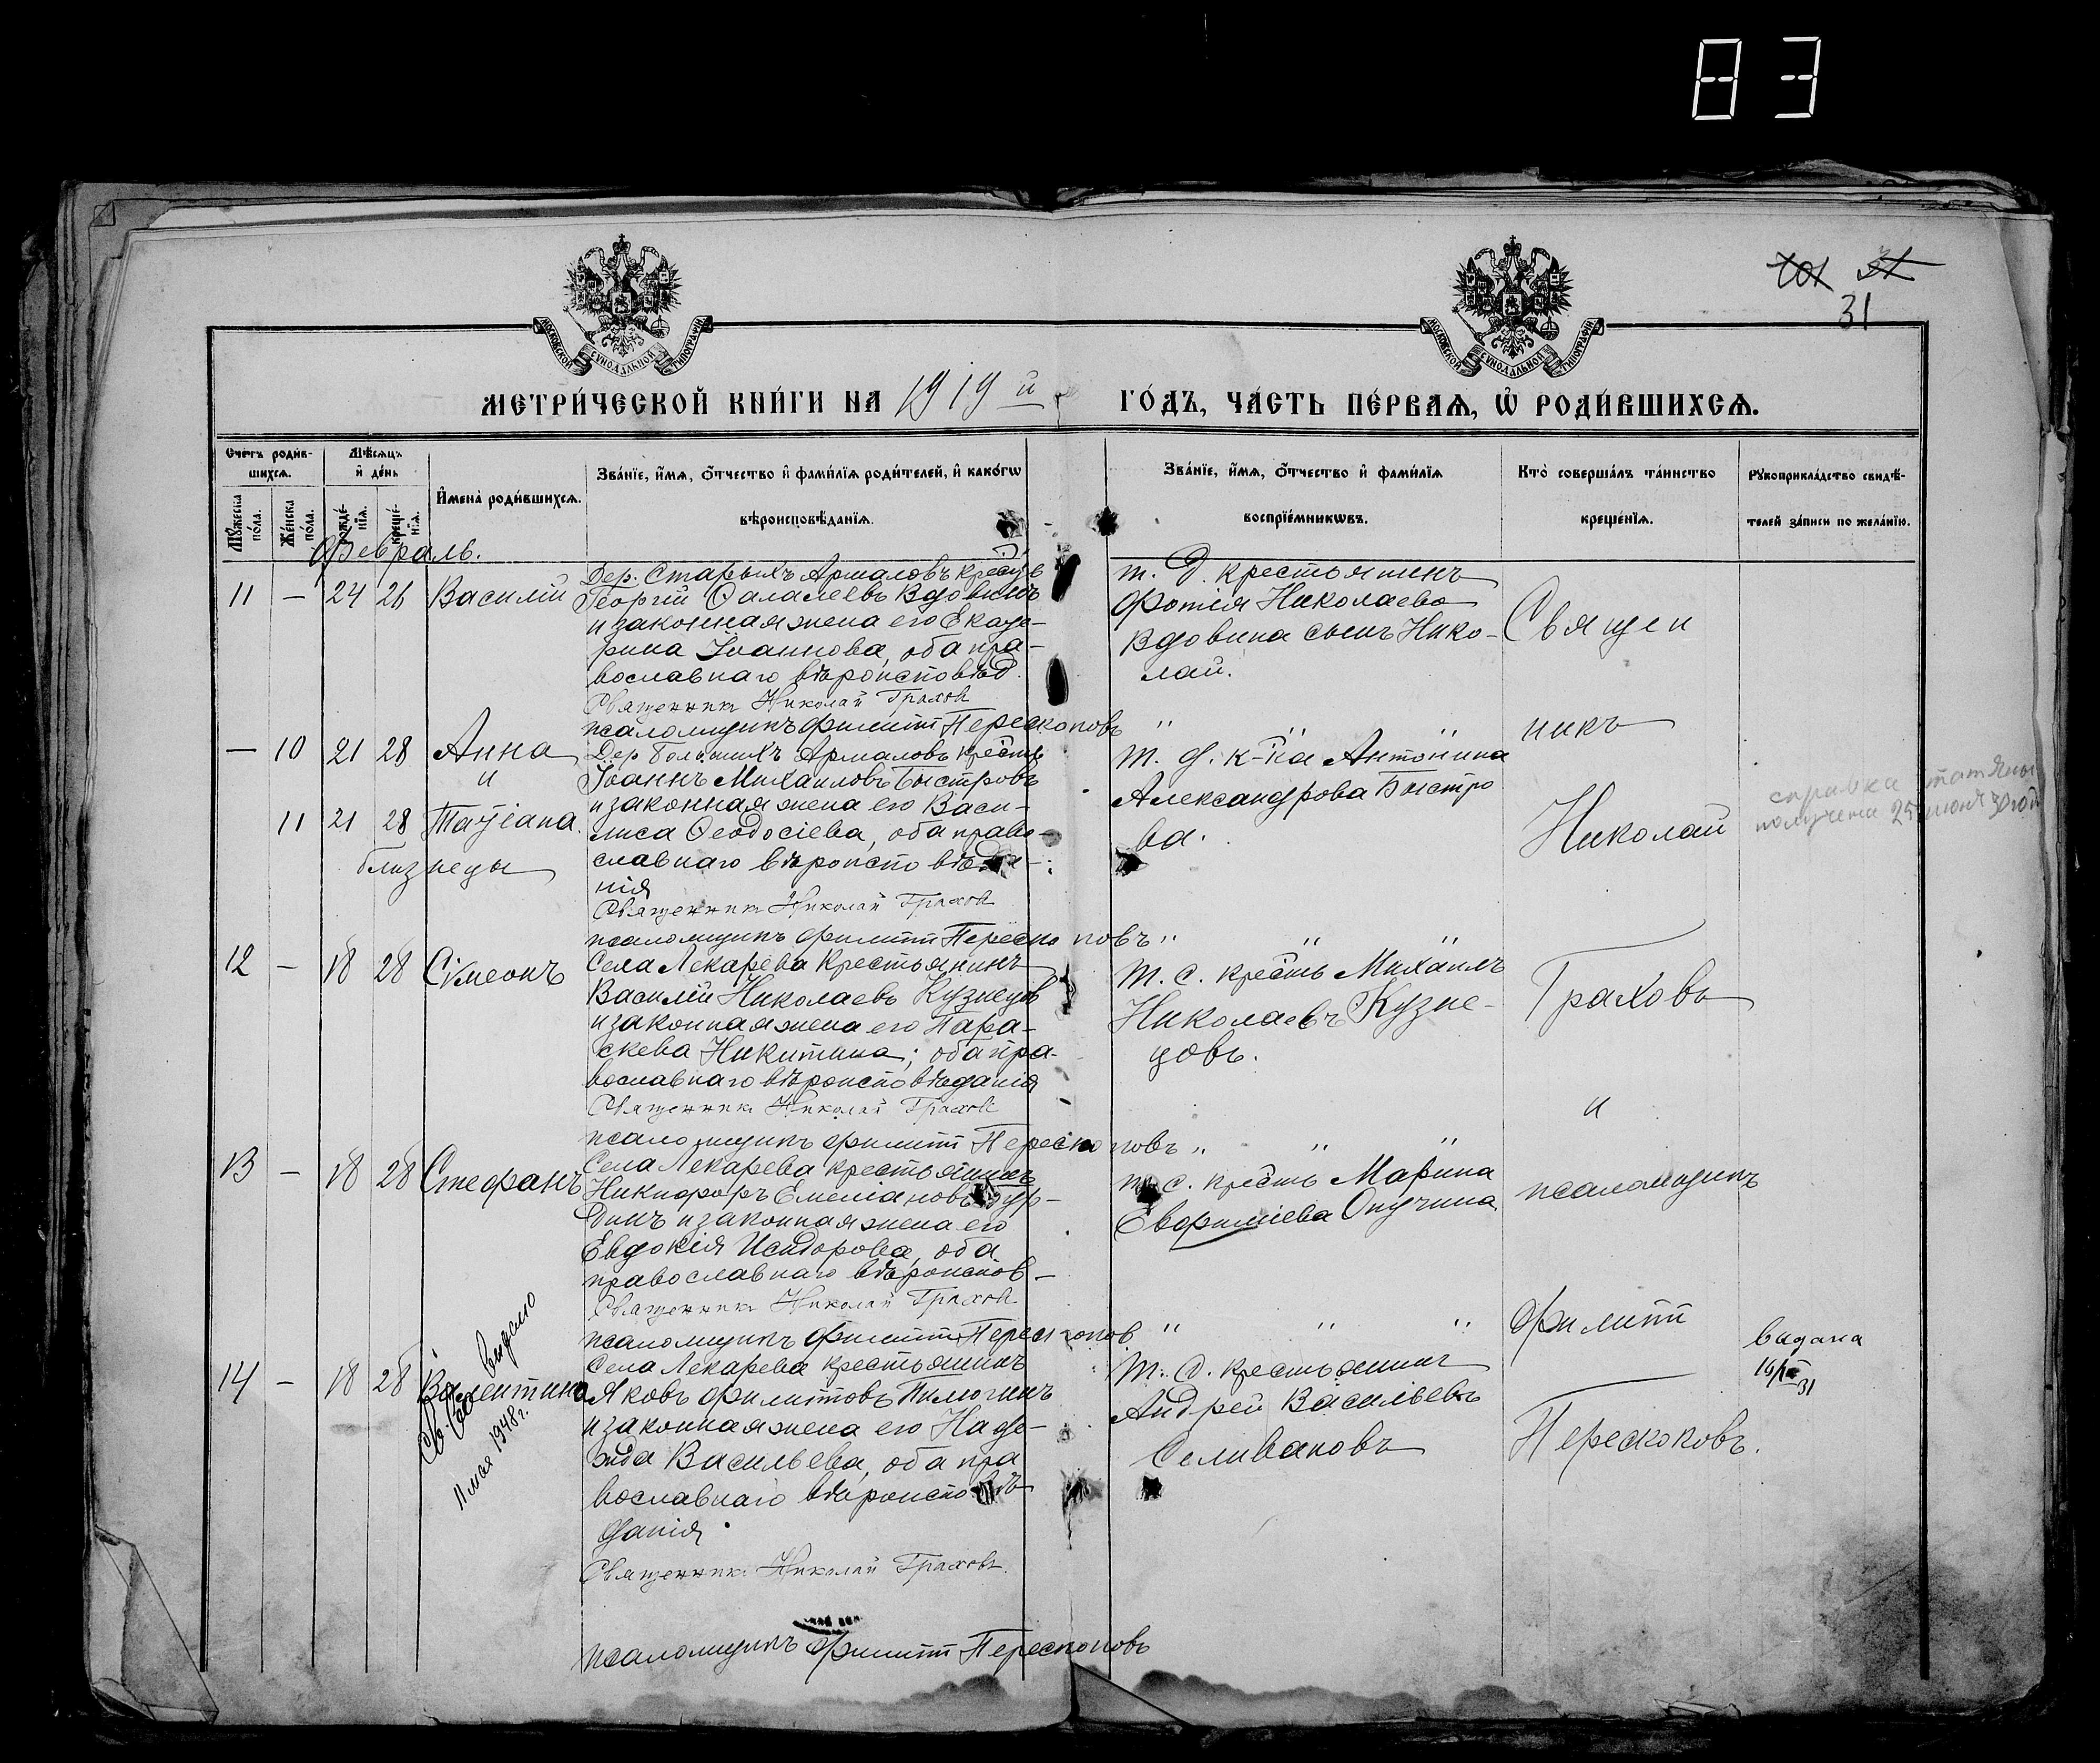 83
101 31
31
МОСКОВСКОЙ СУНОДАЛЬНОЙ ТИПОГРАФІИ
МОСКОВСКОЙ СУНОДАЛЬНОЙ ТИПОГРАФІИ
МЕТРИ́ЧЕСКОЙ КНИ́ГИ НА 1919 й ГО́ДЪ, ЧА́СТЬ ПЕ́РВАѦ, Ѡ҆ РОДИ́ВШИХСѦ.
Сче́тъ роди́в-
шихсѧ.
Мꙋ́жеска по́ла.
Же́нска по́ла.
Мѣ́сѧцъ
и҆ де́нь
рожде́-
нїѧ.
креще́-
нїѧ.
И҆мена̀ роди́вшихсѧ.
Зва́нїе, и҆́мѧ, ѻ҆́тчество и҆ фами́лїѧ роди́телей, и҆ како́гѡ
вѣроисповѣ́данїѧ.
Зва́нїе, и҆́мѧ, ѻ҆́тчество и҆ фами́лїѧ
воспрїе́мникѡвъ.
Кто̀ соверша́лъ та́инство
креще́нїѧ.
Рꙋкоприкла́дство свидѣ́-
телей за́писи по жела́нїю.
Февраль.
11 — 24 26 Василій
Дер. Старыхъ Армаловъ крест
Георгій Фалалеевъ Вдовинъ
и законная жена его Екате-
рина Іоаннова, оба пра-
вославнаго вѣроисповѣд.
Священникъ Николай Граховъ
псаломщикъ Филиппъ Перескоковъ
т. д. крестьянинъ
Фотія Николаева
Вдовина сынъ Нико-
лай.
Священ
никъ
— 10 21 28 Анна
и
11 21 28 Татіана.
близнецы
Дер Большихъ Армаловъ крестьн
Іоаннъ Михаиловъ Быстровъ
и законная жена его Васи-
лиса Феодосіева, оба право-
славнаго вѣроисповѣда-
нія
Священникъ Николай Граховъ
псаломщикъ Филиппъ Перескоковъ
Т. д. к-нка Антонина
Александрова Быстро
ва.
Николай
справка татяны
получена 25 июня 30 года
12 — 18 28 Сімеонъ
Села Лекарева Крестьянинъ
Василій Николаевъ Кузнецовъ
и законная жена его Пара-
скева Никитина; оба пра-
вославнаго вѣроисповѣданія
Священникъ Николай Граховъ
псаломщикъ Филиппъ Перескоковъ
Т. с. крестьн Михаилъ
Николаевъ Кузне-
цовъ.
Граховъ
и
13 — 18 28 Стефанъ
Села Лекарева крестьянинъ
Никифоръ Емеліановъ Бур-
динъ и законная жена его
Евдокія Исидорова, оба
православнаго вѣроиспов-
Священникъ Николай Граховъ
псаломщикъ Филиппъ Перескоковъ
т. с. крестьн Марина
Евфиміева Опучина.
псаломщикъ
Филиппъ
14 — 18 28 Валентинъ
Св-во выдано
11 мая 1948 г.
Села Лекарева крестьянинъ
Яковъ Филипповъ Пилюгинъ
и законная жена его Наде-
жда Васильева, оба пра
вославнаго вѣроисповѣ-
данія.
Священникъ Николай Граховъ.
псаломщикъ Филиппъ Перескоковъ
Т. с. крестьянинъ
Андрей Васильевъ
Селивановъ
Перескоковъ.
выдана
31